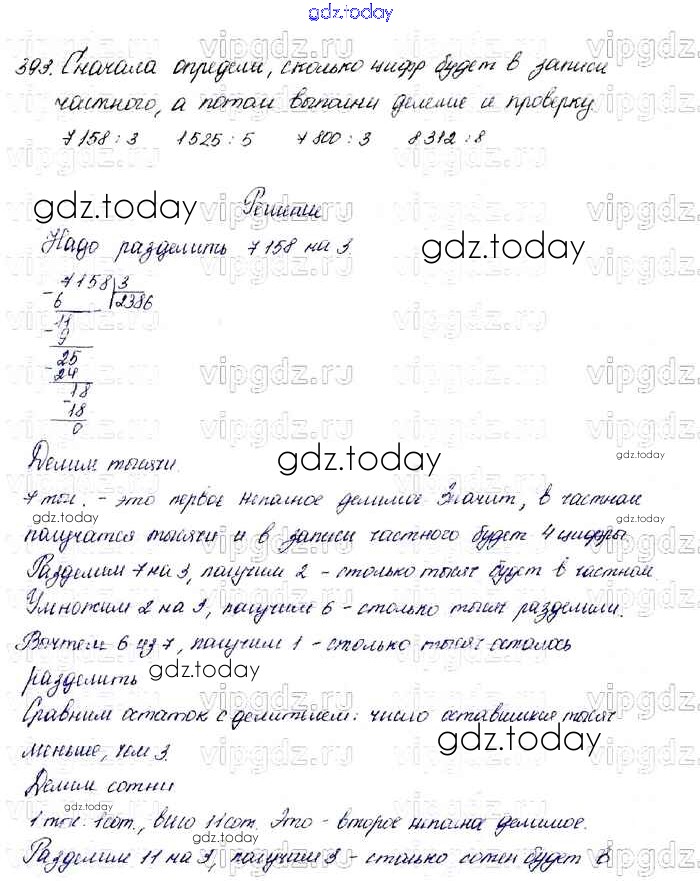 gdz.today
393. Сначала определи, сколько цифр будет в записи
частного, а потом выполни деление и проверку
7158 : 3 1525 : 5 7800 : 3 8312 : 8
Решение
gdz.today
Надо разделить 7158 на 3.
gdz.today
7158 3
- 6 2386
11
- 9
25
- 24
18
- 18
0
Делим тысячи.
gdz.today
7 тыс. - это первое неполное делимое. Значит, в частном
gdz.today
получатся тысячи и в записи частного будет 4 цифры
gdz.today
Разделим 7 на 3, получим 2 - столько тысяч будет в частном
Умножим 2 на 3, получим 6 - столько тысяч разделили.
Вычтем 6 из 7, получим 1 - столько тысяч осталось
разделить
gdz.today
Сравним остаток с делителем: число оставшихся тысяч
меньше, чем 3.
gdz.today
Делим сотни
gdz.today
1 тыс. 1 сот., всего 11 сот. Это - второе неполное делимое.
Разделим 11 на 3, получим 3 - столько сотен будет в
gdz.today
vipgdz.ru